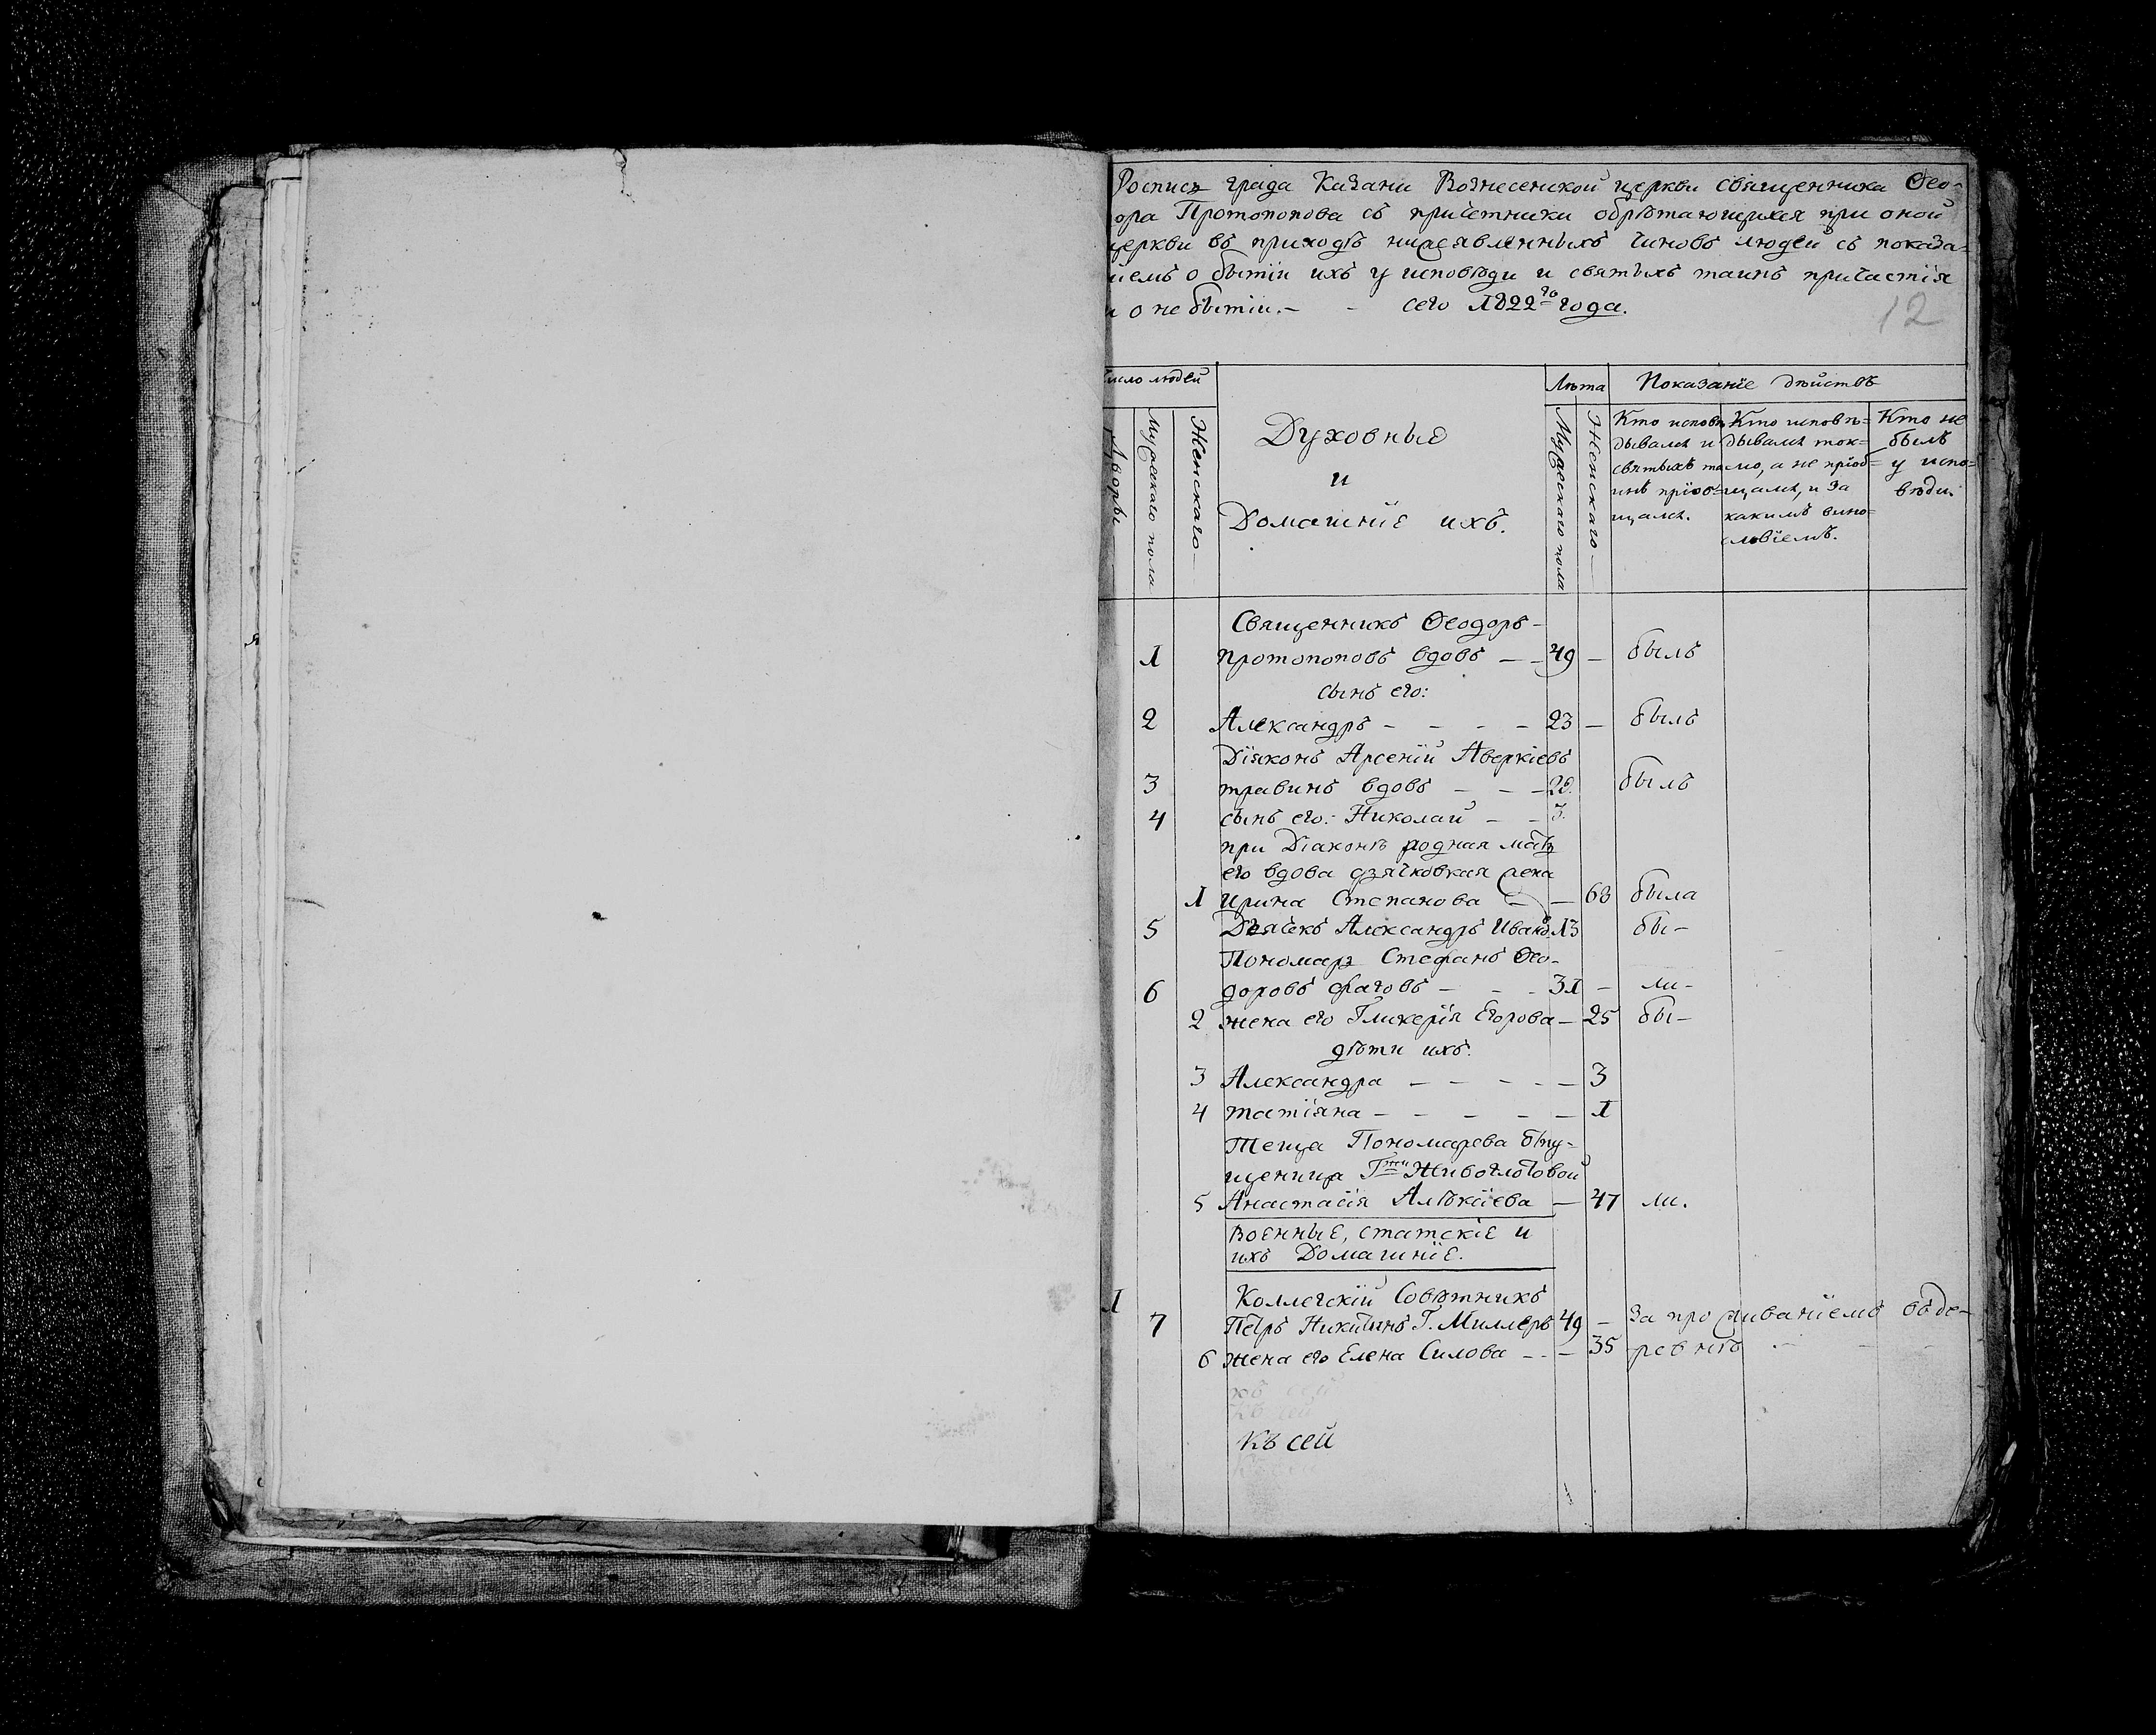 Роспись града Казани Вознесенской церкви священника Ѳео-
ора Протопопова съ причетники обрѣтающихся при оной
церкви въ приходѣ нижеявленныхъ чиновъ людей съ показа-
ніемъ о бытіи ихъ у исповѣди и святыхъ таинъ причастія
и о небытіи.- - сего 1822го года.
12
число людей
Лѣта
Показаніе дѣйствъ
Дворы
Мужескаго пола
Женскаго
Духовныѐ
и
Домашніе ихъ.
Мужескаго пола
Женскаго
Кто исповѣ
дывался и
святыхъ та
инъ пріоб=
щался.
Кто исповѣ=
дывался ток=
мо, а не пріоб=
щался, и за
какимъ вино=
словіемъ.
Кто не
былъ
у испо=
вѣди.
Священникъ Ѳеодоръ -
1 протопоповъ вдовъ - - 49 - былъ
сынъ его:
2 Александръ - - - - 23 - былъ
Діяконъ Арсеній Аверкіевъ
3 травинъ вдовъ - - - былъ
4 сынъ его: Николай - - 3.
при Діаконѣ родная мать
его вдова дьячковская жена
1 Ирина Степанова - - 68 была
5 Дьячекъ Александръ Ивановъ 13 бы-
Пономарь Стефанъ Ѳео-
6 доровъ - - - 31 - ли-
2 жена его Гликерія Егорова - 25 бы-
дѣти ихъ:
3 Александра - - - - - 3
4 татіяна - - - - - 1
Теща Пономарева отпу-
щеница Гжи Животовой
5 Анастасія Алѣксіева - 47 ли.
Военные, статскіе и
ихъ Домашніе.
1 Коллежскій Совѣтникъ
7 Петръ Никитинъ Г. Миллеръ 49 - За проживаніемъ въ де-
6 жена его Елена Силова - - - 35 ревнѣ - - -
Къ сей